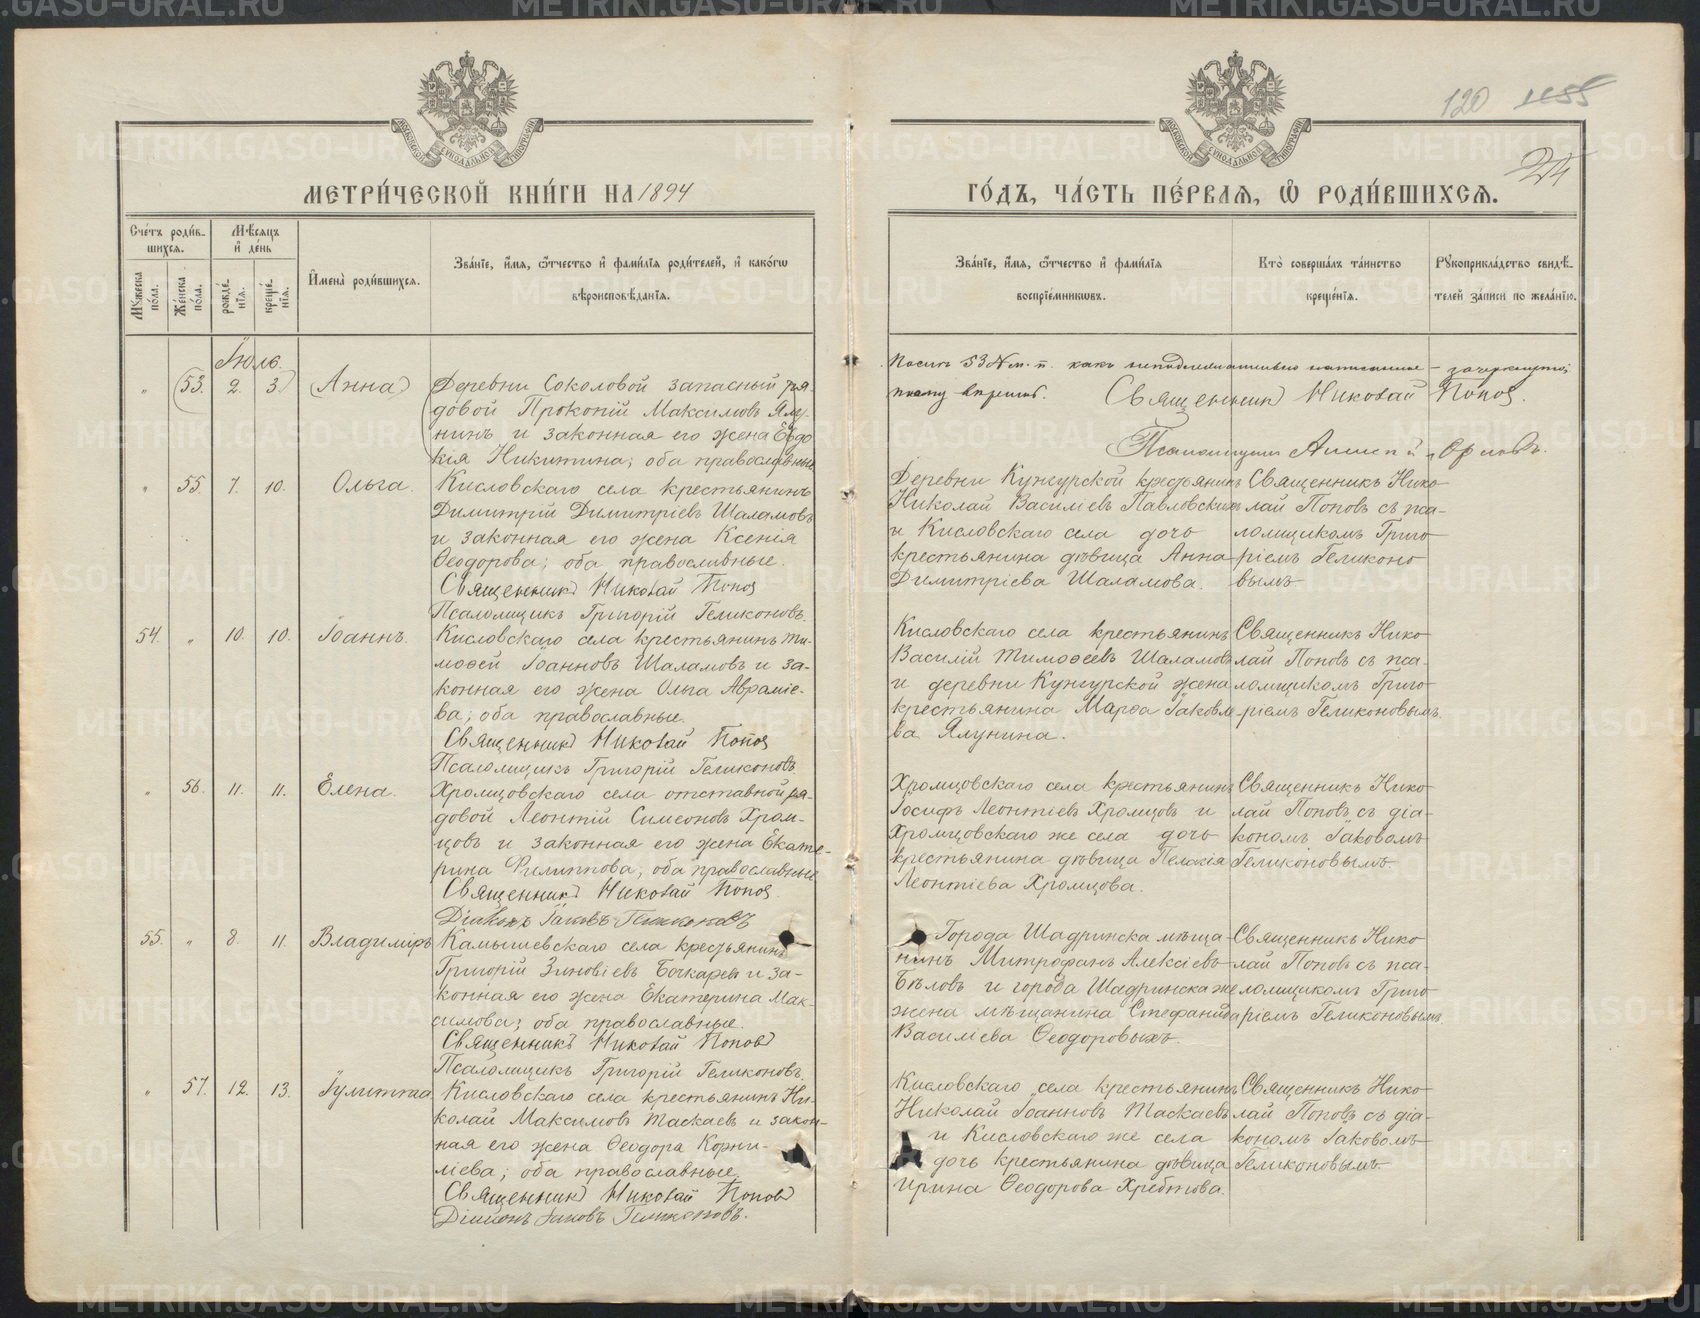 120 1155
24
МЕТРИ́ЧЕСКОЙ КНИ́ГИ НА 1894
ГО́ДЪ, ЧА́СТЬ ПЕ́РВАЯ, Ѽ РОДИ́ВШИХСЯ.
Сче́тъ роди́в-
шихся.
Мѣсяцъ
и́ де́нь
Мꙋжеска по́ла.
Же́нска по́ла.
рожде́нїя.
креще́нїя.
И́мена̀ роди́вшихся.
Зва́нїе, и́мя, ѻ҆́тчество и́ фами́лїя роди́телей, и́ како́гѡ
вѣроисповѣ́данїя.
Зва́нїе, и́мя, ѻ҆́тчество и́ фами́лїя
воспрїе́мникѡвъ.
Кто̀ соверша́лъ та́инство
креще́нїя.
Рꙋкоприкла́дство свидѣ́-
телей за́писи по жела́нїю.
Іюль.
„ 53. 2. 3. Анна
Деревни Соколовой запасный ря-
довой Прокопій Максимовъ Ялу-
нинъ и законная его жена Евдо
кія Никитина; оба православные
53 № какъ неподлежательно написанное - зачеркнуто,
Священникъ Николай Попов.
Псаломщикъ Орловъ.
„ 55. 7. 10. Ольга.
Кисловскаго села крестьянинъ
Димитрій Димитріевъ Шаламовъ
и законная его жена Ксенія
Ѳеодорова; оба православные.
Священникъ Николай Попов
Псаломщикъ Григорій Геликоновъ.
Деревни Кунгурской крестьянинъ
Николай Василіевъ Павловскихъ
и Кисловскаго села дочь
крестьянина дѣвица Анна
Димитріева Шаламова.
Священникъ Нико-
лай Поповъ съ пса-
ломщикомъ Григо-
ріемъ Геликоно-
вымъ
54. „ 10. 10. Іоаннъ.
Кисловскаго села крестьянинъ Ти-
моѳей Іоанновъ Шаламовъ и за-
конная его жена Ольга Авраміе-
ва; оба православные.
Священникъ Николай Попов
Псаломщикъ Григорій Геликоновъ
Кисловскаго села крестьянинъ
Василій Тимоѳеевъ Шаламовъ
и деревни Кунгурской жена
крестьянина Марѳа Іаковле-
ва Ялунина.
Священникъ Нико-
лай Поповъ съ пса-
ломщикомъ Григо-
ріемъ Геликоновымъ.
„ 56. 11. 11. Елена.
Хромцовскаго села отставной ря-
довой Леонтій Симеоновъ Хром-
цовъ и законная его жена Екате-
рина Филиппова; оба православные
Священникъ Николай Попов
Діаконъ Іаковъ Геликоновъ
Хромцовскаго села крестьянинъ
Іосифъ Леонтіевъ Хромцовъ и
Хромцовскаго же села дочь
крестьянина дѣвица Пелагія
Леонтіева Хромцова.
Священникъ Нико-
лай Поповъ съ діа-
кономъ Іаковомъ
Геликоновымъ
55. „ 8. 11. Владиміръ
Камышевскаго села крестьянинъ
Григорій Зиновіевъ Бочкаревъ и за-
конная его жена Екатерина Мак-
симова; оба православные.
Священникъ Николай Поповъ
Псаломщикъ Григорій Геликоновъ.
Города Шадринска мѣща-
нинъ Митрофанъ Алексіевъ
Бѣловъ и города Шадринска же
жена мѣщанина Стефанида
Василіева Ѳеодоровыхъ.
Священникъ Нико-
лай Поповъ съ пса-
ломщикомъ Григо-
ріемъ Геликоновымъ.
„ 57. 12. 13. Іулитта
Кисловскаго села крестьянинъ Ни-
колай Максимовъ Таскаевъ и закон-
ная его жена Ѳеодора Корни-
ліева; оба православные.
Священникъ Николай Поповъ
Діаконъ Іаковъ Геликоновъ.
Кисловскаго села крестьянинъ
Николай Іоанновъ Таскаевъ
и Кисловскаго же села
дочь крестьянина дѣвица
Ирина Ѳеодорова Хребтова.
Священникъ Нико-
лай Поповъ съ діа-
кономъ Іаковомъ
Геликоновымъ
METRIKI.GASO-URAL.RU